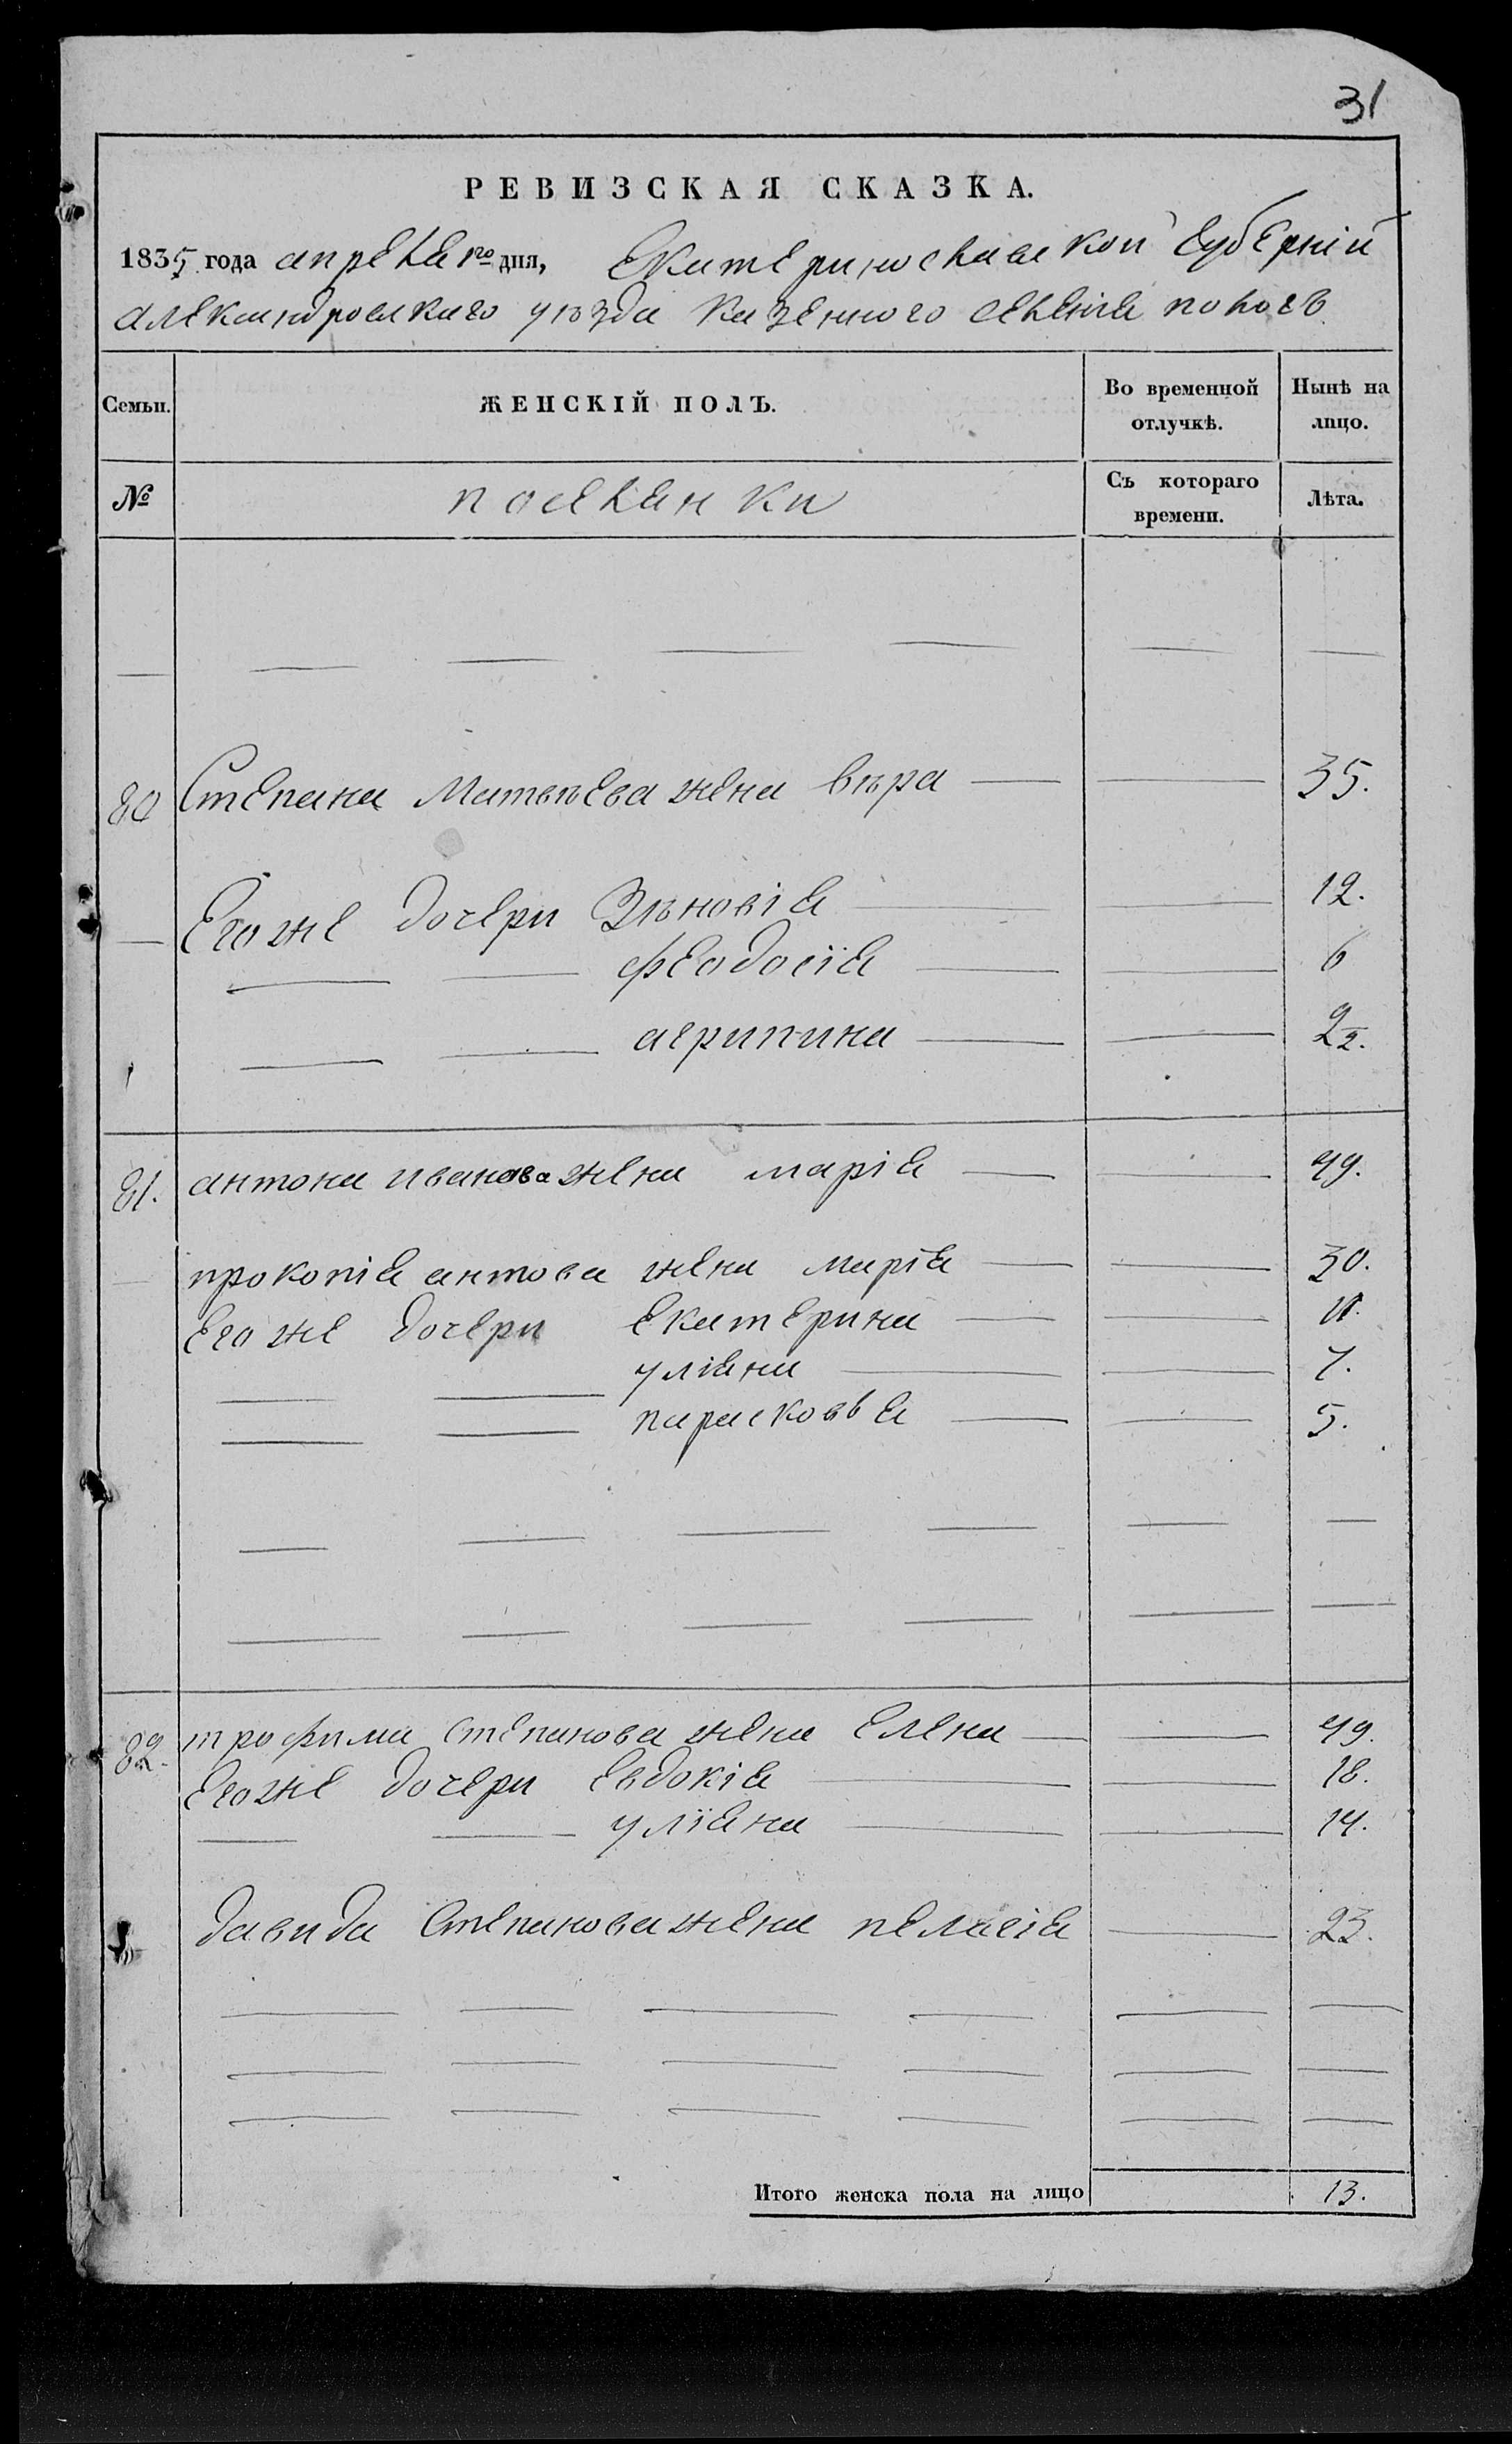 31
РЕВИЗСКАЯ СКАЗКА.
1835 года апреля 1го дня, Екатеринославской Губерніи
александровскаго уѣзда казенного селенія пологъ
Семьи. ЖЕНСКІЙ ПОЛЪ. Во временной отлучкѣ. Нынѣ на лицо.
№ поселянки Съ котораго времени. Лѣта.
80 Степана Матвѣева жена вѣра 35.
Его же дочери Зѣновія 12.
феодосія 6
агрипина 2 1/2.
81. антона иванова жена марія 49.
прокопія антова жена марія 30.
Его же дочери екатерина 11.
уліяна 7.
парасковья 5.
82. трофима степанова жена елена 49.
Его же дочери евдокія 18.
уліяна 14.
давида степанова жена пелагія 23.
Итого женска пола на лицо 13.